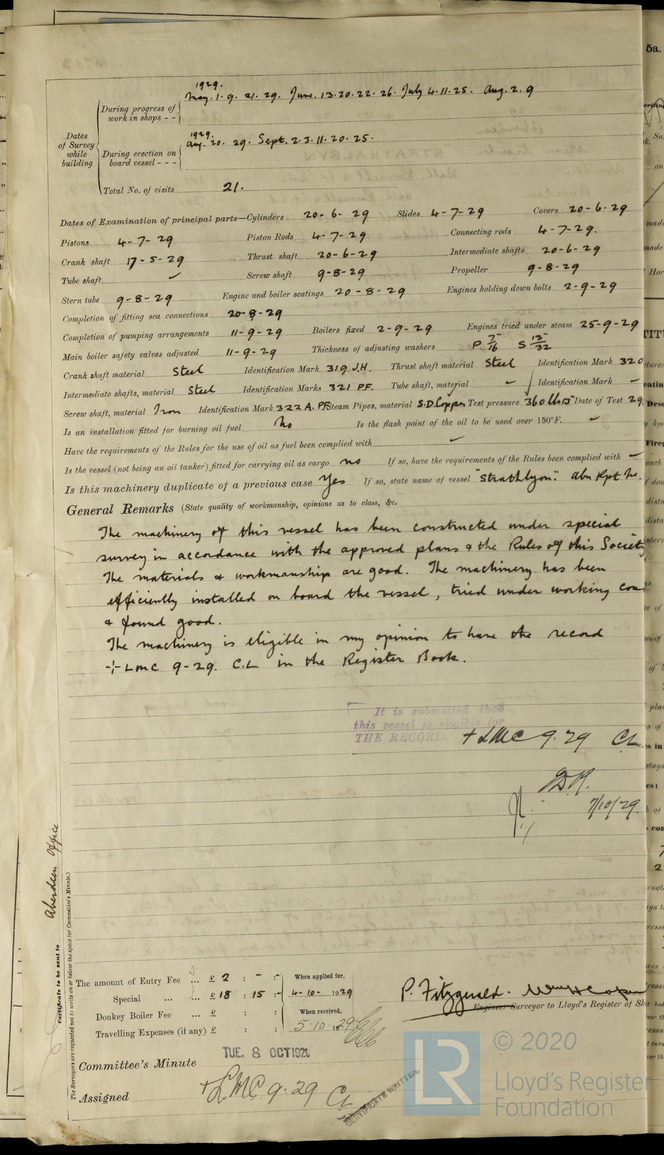 1929.
During progress of work in shops - - May. 1. 9. 21. 29. June. 13. 20. 22. 26. July 4. 11. 25. Aug. 2. 9
Dates of Survey while building
1929
During erection on board vessel - - - Aug. 20. 29. Sept. 2. 3. 11. 20. 25.
Total No. of visits 21.
Dates of Examination of principal parts—Cylinders 20-6-29 Slides 4-7-29 Covers 20-6-29
Pistons 4-7-29 Piston Rods 4-7-29 Connecting rods 4-7-29.
Crank shaft 17-5-29 Thrust shaft 20-6-29 Intermediate shafts 20-6-29
Tube shaft Screw shaft 9-8-29 Propeller 9-8-29
Stern tube 9-8-29 Engine and boiler seatings 20-8-29 Engines holding down bolts 2-9-29
Completion of fitting sea connections 20-8-29
Completion of pumping arrangements 11-9-29 Boilers fixed 2-9-29 Engines tried under steam 25-9-29
Main boiler safety valves adjusted 11-9-29 Thickness of adjusting washers P 7/16 S 13/32
Crank shaft material Steel Identification Mark 319 J.H. Thrust shaft material Steel Identification Mark 320
Intermediate shafts, material Steel Identification Marks 321 P.F. Tube shaft, material - Identification Mark -
Screw shaft, material Iron Identification Mark 322 A. PF Steam Pipes, material S.D. Copper Test pressure 360 lbs □" Date of Test 29
Is an installation fitted for burning oil fuel No Is the flash point of the oil to be used over 150°F. -
Have the requirements of the Rules for the use of oil as fuel been complied with
Is the vessel (not being an oil tanker) fitted for carrying oil as cargo no If so, have the requirements of the Rules been complied with -
Is this machinery duplicate of a previous case Yes If so, state name of vessel "Strathlyon". Abn Rpt No.
General Remarks (State quality of workmanship, opinions as to class, &c.
The machinery of this vessel has been constructed under special
survey in accordance with the approved plans & the Rules of this Society
The materials & workmanship are good. The machinery has been
efficiently installed on board the vessel, tried under working con
& found good.
The machinery is eligible in my opinion to have the record
+ LMC 9-29. C.L in the Register Book.
It is submitted that
this vessel is eligible for
THE RECORD. + LMC 9.29 CL
7/10/29.
Aberdeen Office
Certificate to be sent to
(The Surveyors are requested not to write on or below the space for Committee's Minute.)
The amount of Entry Fee ... £ 2 : - : - When applied for,
Special ... ... £ 18 : 15 : - 4-10-1929
Donkey Boiler Fee ... £ : : When received,
Travelling Expenses (if any) £ : : 5.10.29
P. Fitzgerald.
Engineer Surveyor to Lloyd's Register of Sh
Committee's Minute TUE. 8 OCT 1929
Assigned + LMC 9.29 CL
CERTIFICATE WRITTEN.
© 2020
LR
Lloyd's Register
Foundation